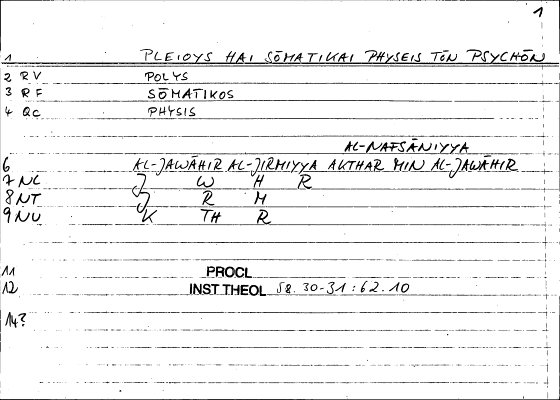 1
1 PLEIOYS HAI SŌMATIKAI PHYSEIS TŌN PSYCHŌN
2 RV POLYS
3 RF SŌMATIKOS
4 QC PHYSIS
AL-NAFSĀNIYYA
6 AL-JAWĀHIR AL-JIRMIYYA AKTHAR MIN AL-JAWĀHIR
7 NL J W H R
8 NT J R M
9 NU K TH R
11 PROCL
12 INST THEOL 58.30-31:62.10
14?